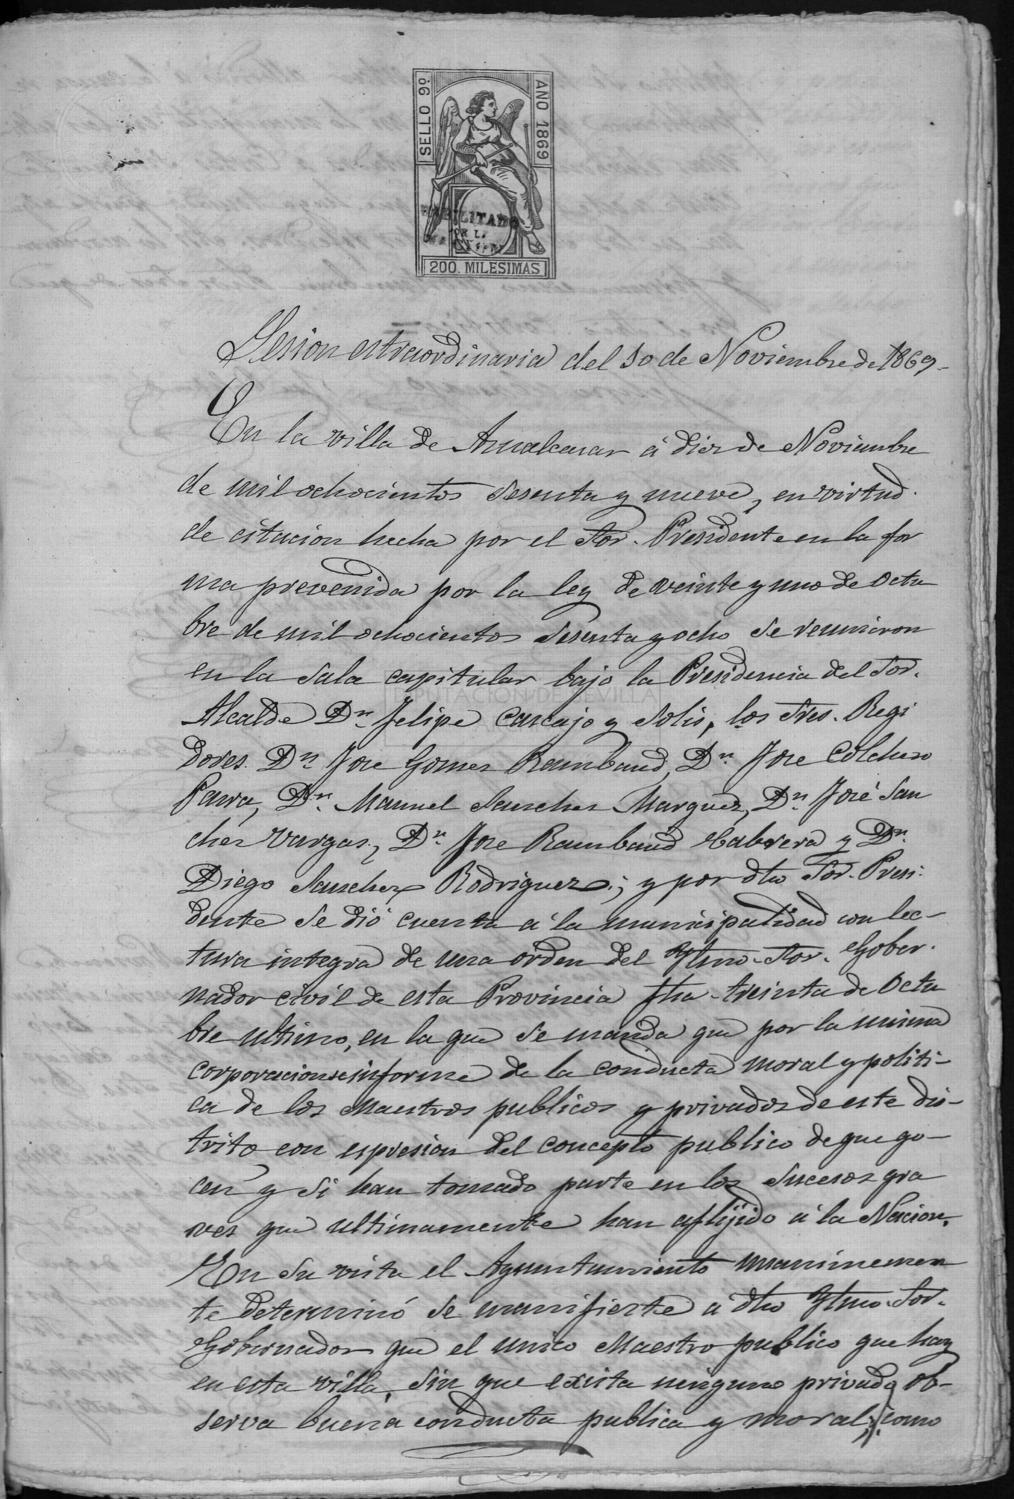 SELLO 9º
AÑO 1869
HABILITADO
POR LA
NACION
200. MILESIMAS
Sesion estraordinaria del 10 de Noviembre de 1869-
En la villa de Aznalcazar á diez de Noviembre
de mil ochocientos sesenta y nueve, en virtud
de citacion hecha por el Sor. Presidente en la for
ma prevenida por la ley de veinte y uno de Octu
bre de mil ochocientos sesenta y ocho se reunieron
en la sala capitular bajo la Presidencia del Sor.
DIPUTACION DE SEVILLA
Alcalde Dn. Felipe Cascajo y Solis, los Sres. Regi
dores Dn. Jose Gomez Rambaud, Dn. Jose Colchero
Parra, Dn. Manuel Sanchez Marquez, Dn. José San
chez Vargas, Dn. Jose Rambaud Cabrera y Dn.
Diego Sanchez Rodriguez; y por dho Sor. Presi-
dente se dió cuenta á la municipalidad con lec-
tura integra de una orden del Yltmo. Sor. Gober-
nador civil de esta Provincia fha treinta de Octu
bre ultimo, en la que se manda que por la misma
corporacion se informe de la conducta moral y politi-
ca de los Maestros publicos y privados de este dis-
trito con espresion del concepto publico de que go-
cen y si han tomado parte en los sucesos gra
ves que ultimamente han aflijido á la Nacion.
En su vista el Ayuntamiento unanimemen
te determinó se manifieste á dho Yltmo. Sor.
Gobernador que el unico Maestro publico que hay
en esta villa, sin que exista ninguno privado ob-
serva buena conducta publica y moral; como